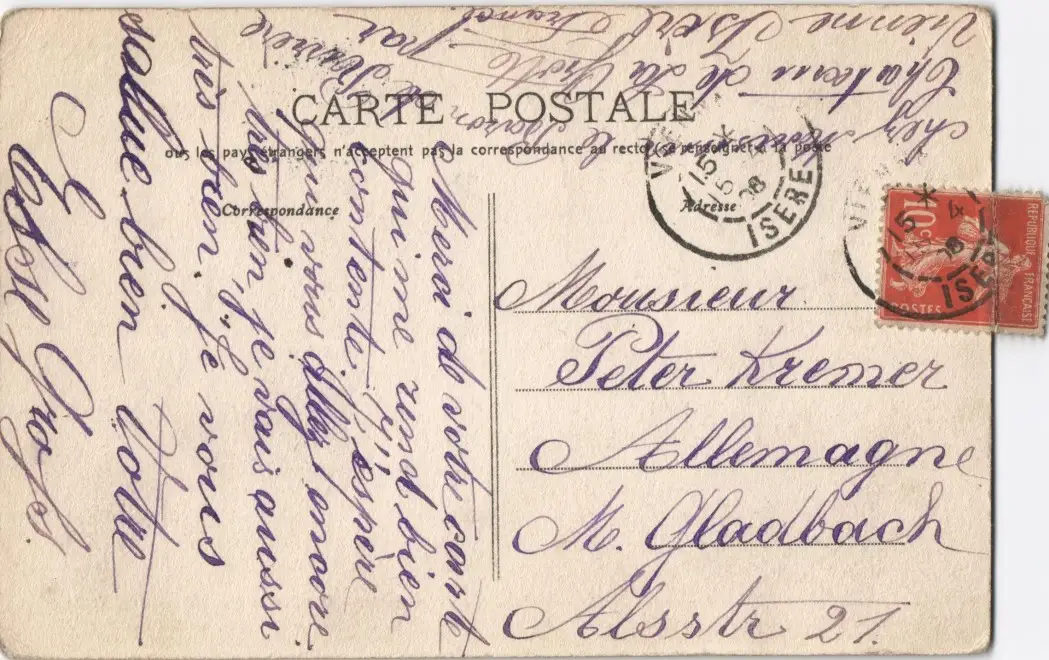 CARTE POSTALE
ous les pays étrangers n'acceptent pas la correspondance au recto (se renseigner à la poste
Correspondance
Adresse
Monsieur
Peter Kremer
Allemagne
M. Gladbach
Alsstr 21.
Merci de votre carte
qui me rend bien
contente. J'espère
que vous allez encore
très bien, je vais aussi
très bien. Je vous
salue bien Votre
Else
chez Monsieur le Baron
Chateau de la
Vienne Isère France
par
ISERE
15
5
08
10c
POSTES
RÉPUBLIQUE FRANÇAISE
VIENNE
15
4
ISERE